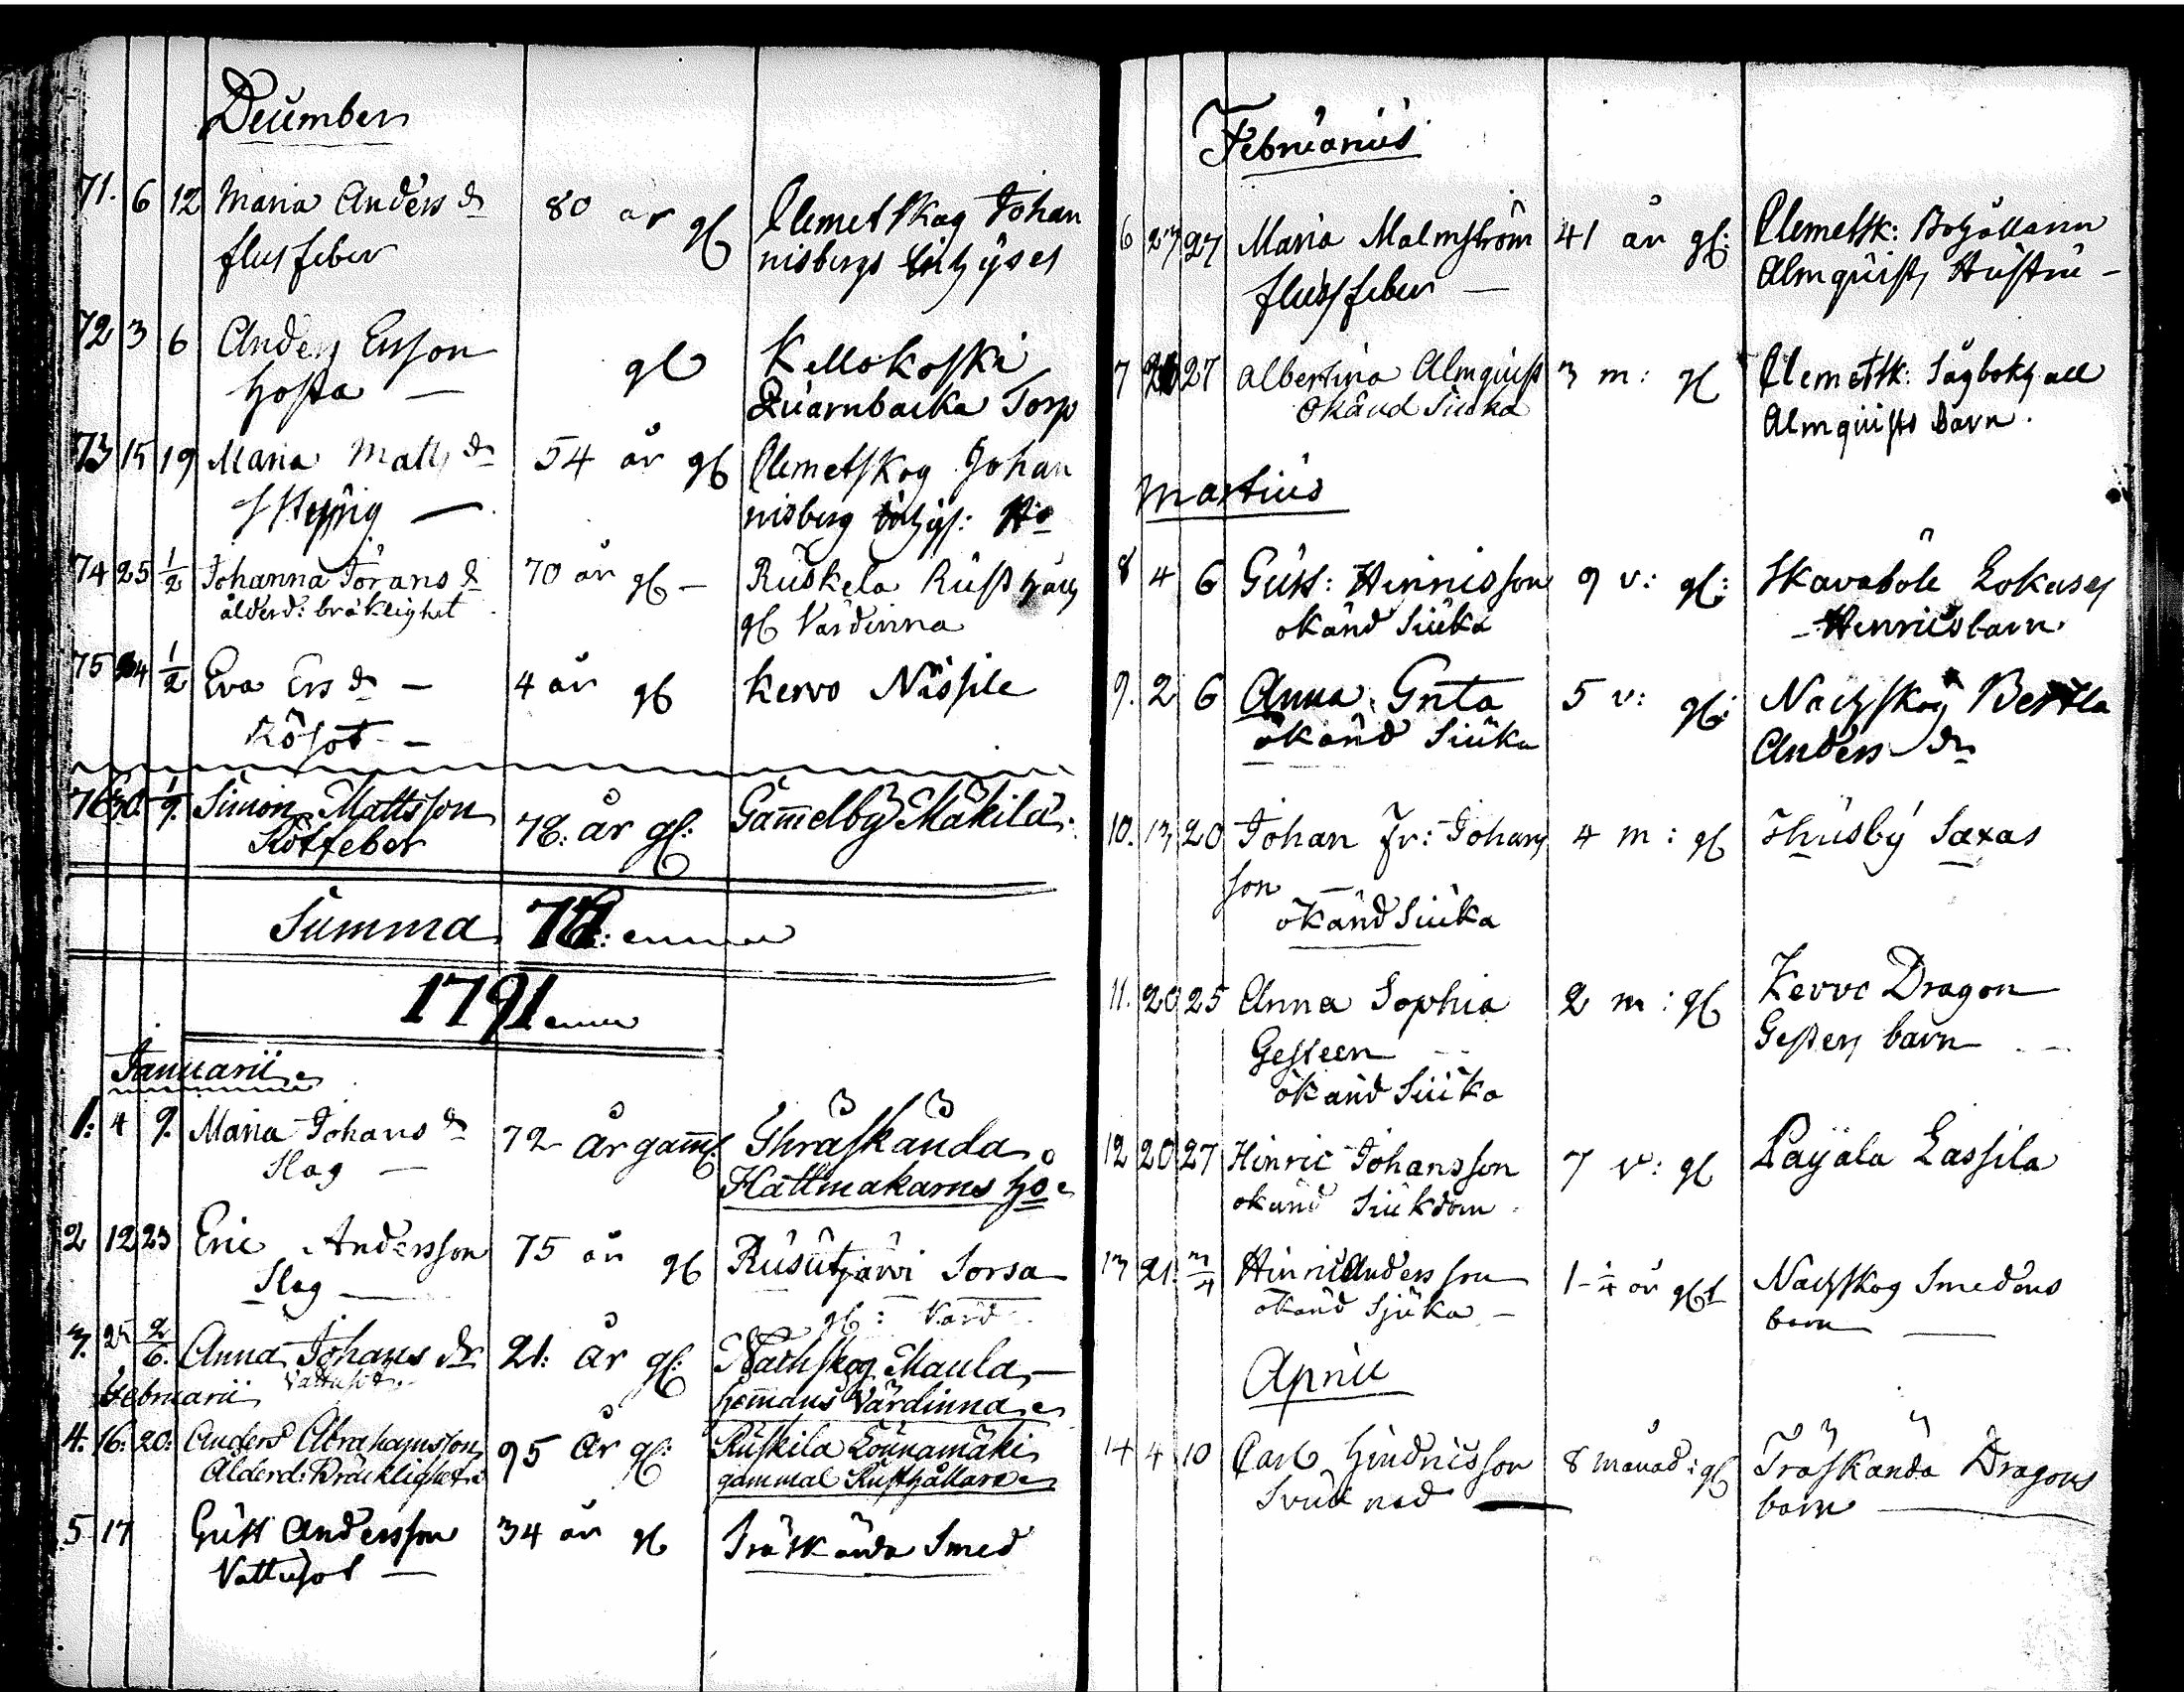 December
71. 6 12 Maria Anders dr 80 år gl Clemetskog Johan
flusfeber nisbergs inhyses
72 3 6 Anders Ersson gl Kellokoski
hosta — Quarnbacka Torp
73 15 19 Maria Matts dr 54 år gl Clemetskog Johan
nisberg inhys: Ho
74 25 1/2 Johanna Jörans dr 70 år gl — Ruskela Rusthålls
ålderd: bräklighet gl Värdinna
75 24 1/2 Eva Ers dr — 4 år gl Kervo Nissile
Rösot —
76 30. 1/9. Simon Mattsson 78: år gl: Gam̄elby Mäkilä.
Rötfeber
Summa 76:
1791
Januarii
1: 4 9. Maria Johans dr 72 år gam̄l: Thräskända
Slag — Hattmakarens ho
2 12 23 Eric Andersson 75 år gl Rusutjärvi Sorsa
Slag — gl: Värd
3. 25 2/6. Anna Johans dr 21: år gl: Nackskog Maula
Vattusot hem̄ans Värdinna
Februarii
4. 16: 20: Anders Abrahamsson 95 år gl: Ruskila Lounamäki
Ålderd: Bräcklighet gammal Rusthållare
5 17 Gust Andersson 34 år gl Träskända Smed
Vattusot —
Februarius
6 27 27 Maria Malmström 41 år gl: Clemetsk: Bokhållarn
flussfeber — Almquists Hustru —
7 27 Albertina Almquist 3 m: gl Clemetsk: Sågbokhåll
okänd Siuka Almquists Barn.
Martius
8 4 6 Gust: Henricsson 9 v: gl: Skavaböle Lokases
okänd Siuka — Henrics barn
9. 2 6 Anna Greta 5 v: gl: Nackskog Bertla
okänd Siuka Anders dr
10. 13 20 Johan Fr: Johans 4 m: gl Thusby Saxas
son —
okänd Siuka
11. 20 25 Anna Sophia 2 m: gl Kervo Dragon
Gesteen Gestens barn
okänd Siuka
12 20 27 Hinric Johansson 7 v: gl Payala Lassila
okänd Siukdom
13 21. 3/4 Hinric Andersson 1 1/4 år gl Nackskog Smedens
okänd Sjuka — barn —
April
14 4 10 Carl Hindricsson 8 månad: gl Träskända Dragons
Svulnad — barn —